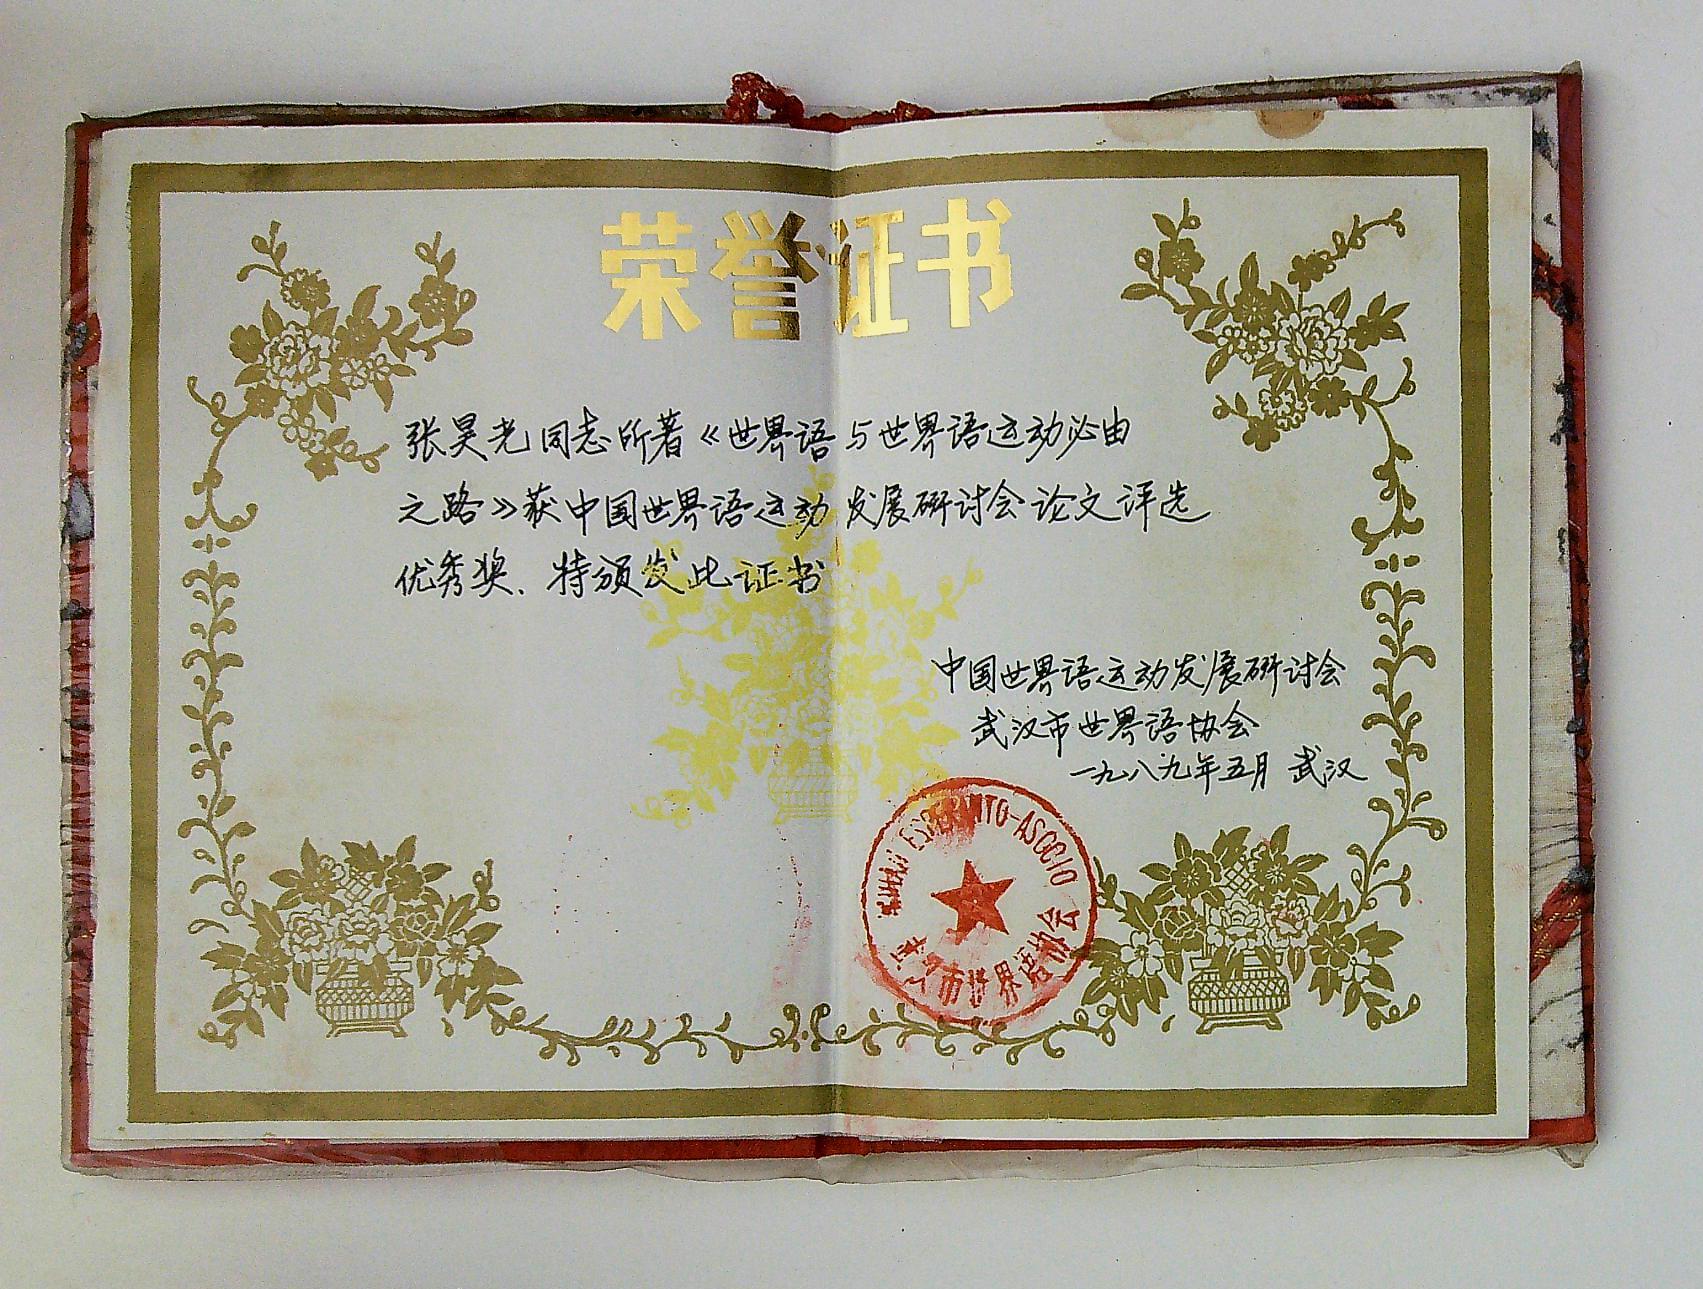 荣誉证书
张昊光同志所著《世界语与世界语运动必由
之路》获中国世界语运动发展研讨会论文评选
优秀奖、特颁发此证书
中国世界语运动发展研讨会
武汉市世界语协会
一九八九年五月 武汉
WUHAN ESPERANTO-ASOCIO
武汉市世界语协会